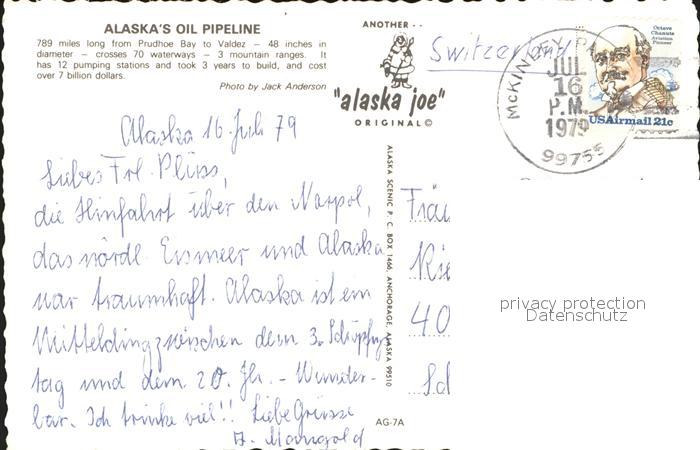 ALASKA'S OIL PIPELINE
789 miles long from Prudhoe Bay to Valdez — 48 inches in
diameter — crosses 70 waterways — 3 mountain ranges. It
has 12 pumping stations and took 3 years to build, and cost
over 7 billion dollars.
Photo by Jack Anderson
ANOTHER
"alaska joe"
ORIGINAL©
Switzerland
Octave
Chanute
Aviation
Pioneer
USAirmail 21c
McKINLEY PA
JUL
16
P.M.
1979
99755
Alaska 16. Juli 79
Liebes Frl. Plüss,
die Hinfahrt über den Norpol,
das nördl. Eismeer und Alaska
war traumhaft. Alaska ist ein
Mittelding zwischen dem 3. Schöpfungs
tag und dem 20. Jh. - Wunder-
bar. Ich trinke viel!! Liebe Grüsse
A. Mangold
ALASKA SCENIC P. C. BOX 1466, ANCHORAGE, ALASKA 99510
AG-7A
Fräu
40
privacy protection
Datenschutz